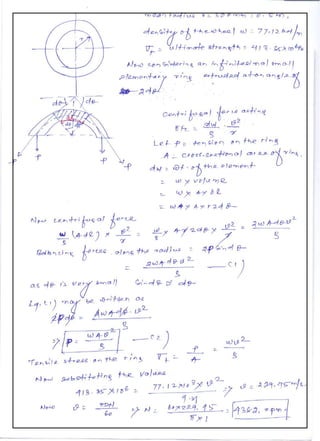 mean radius r = 500 mm = 0.5 m,
density of the wheel ω = 77.12 kN/m
= Ultimate strength = 413.25×10⁶ N
Now considering an infinitesimal small
elementary ring extruded at an angle of
2dθ
dθ dθ
P P
Centrifugal force acting
= dω/g · v²/r
Let P = tension on the ring
A = cross-sectional area of ring.
dω = wt. of the element
= ω × volume
= ω × A × dl
= ω × A × r 2dθ
Now centrifugal force
ω/g (A dl) × v²/r = ω/g × A × 2dθ × v²/r = 2ωAdθv²/g
Balancing forces along the radius = 2P sin dθ
= 2ωAdθv²/g —(1)
as dθ is very small sin dθ ≅ dθ
Eq.(1) may be written as
2Pdθ = 2ωAdθ·v²/g
⇒ P = ωAv²/g —(2)
Tensile stress on the ring = P/A = ωv²/g
Now substituting the values
413.25×10⁶ = 77.12×10³ × v² / 9.81 ⇒ v = 229.45 m/s
Now v = πDN/60 ⇒ N = 60×229.45 / π×1 = 4382. rpm